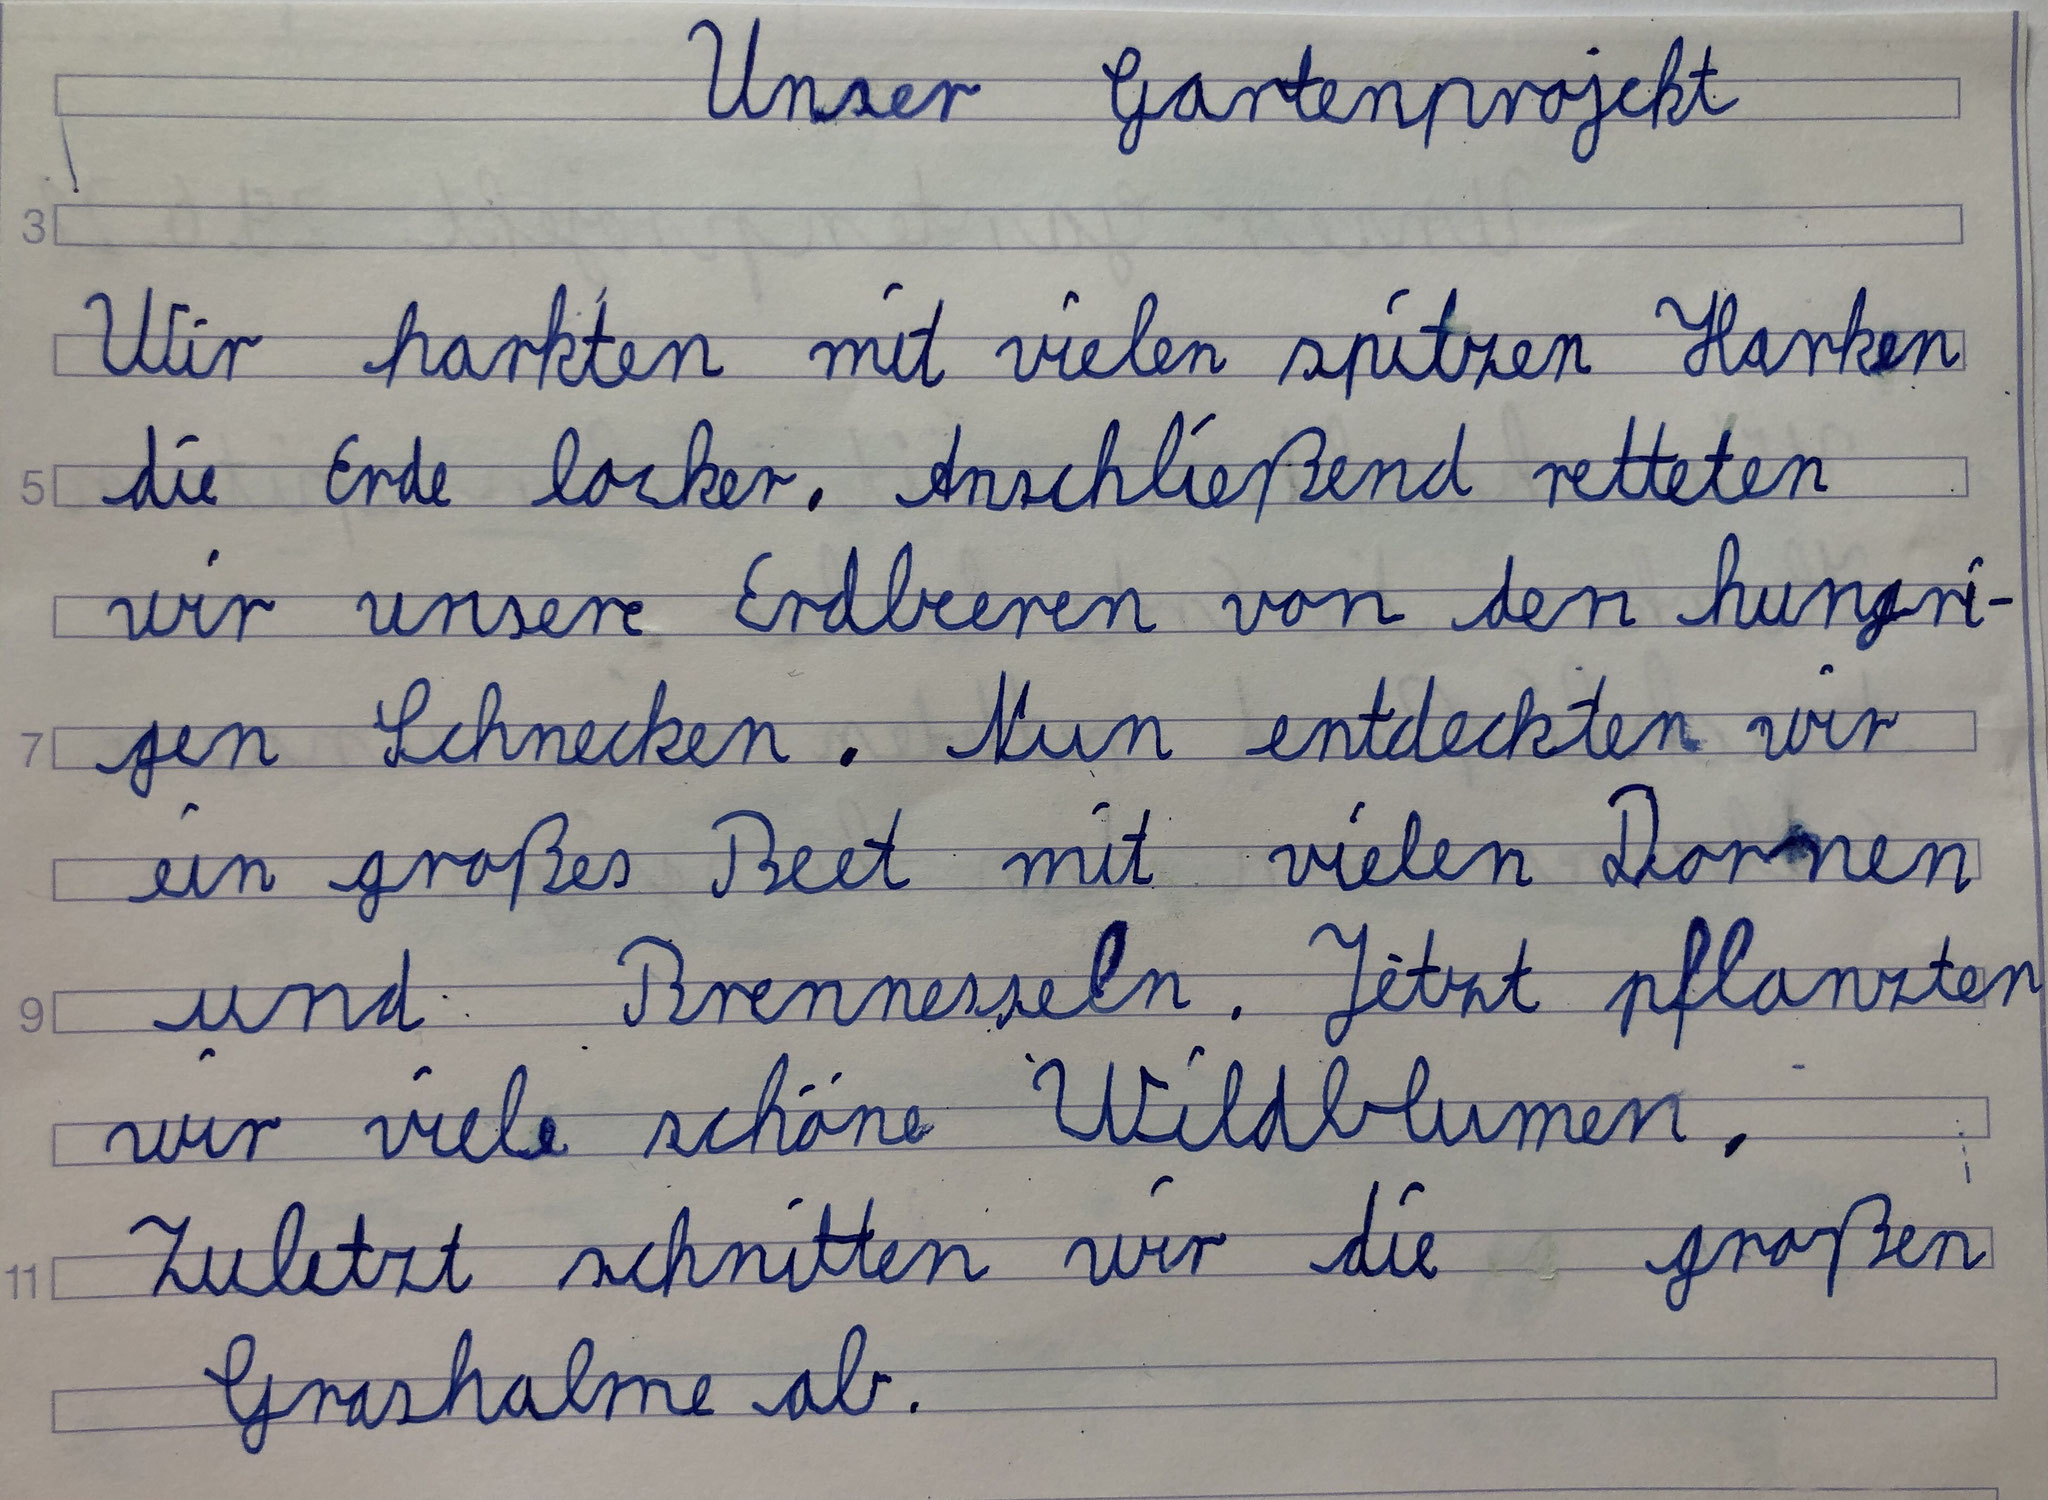 Unser Gartenprojekt
3
Wir harkten mit vielen spitzen Harken
5 die Erde locker. Anschließend retteten
wir unsere Erdbeeren von den hungri-
7 gen Schnecken. Nun entdeckten wir
ein großes Beet mit vielen Dornen
9 und Brennesseln. Jetzt pflanzten
wir viele schöne Wildblumen.
11 Zuletzt schnitten wir die großen
Grashalme ab.